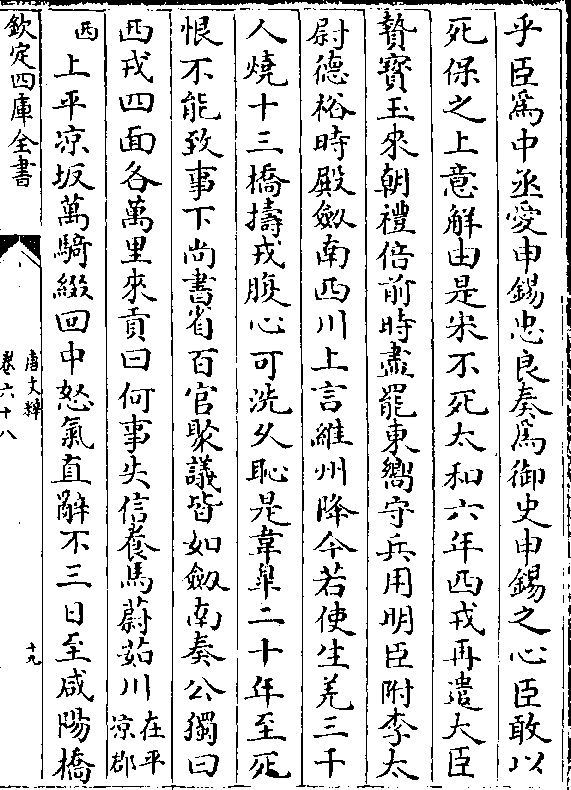 乎臣爲中丞愛申錫忠良奏爲御史申錫之心臣敢以
死保之上意解由是宋不死太和六年西戎再遣大臣
贄寶玉來朝禮倍前時盡罷東嚮守兵用明臣附李太
尉德裕時殿劔南西川上言維州降今若使生羌三千
人燒十三橋擣戎腹心可洗久恥是韋臯二十年至死
恨不能致事下尚書省百官聚議皆如劔南奏公獨曰
西戎四面各萬里來責曰何事失信養馬蔚茹川在平
涼郡
西上平凉坂萬騎綴回中怒氣直辭不三日至咸陽橋
欽定四庫全書
唐文粹
卷六十八
十九